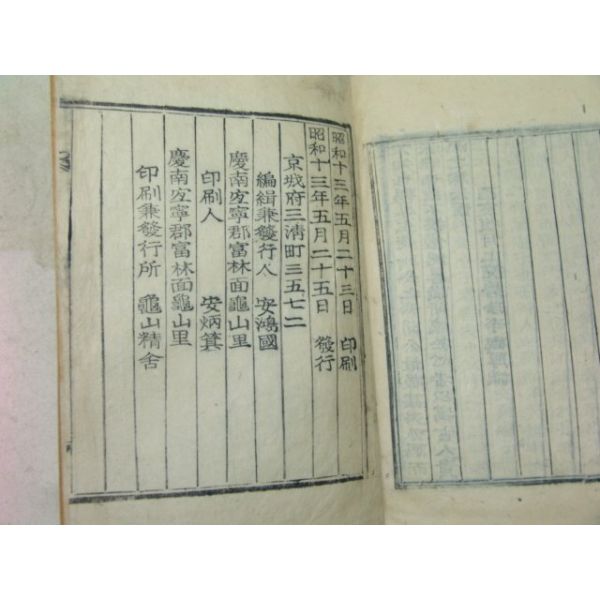 昭和十三年五月二十三日 印刷
昭和十三年五月二十五日 發行
京城府三淸町三五七二
編緝兼發行人 安鴻國
慶南宜寧郡富林面龜山里
印刷人 安炳箕
慶南宜寧郡富林面龜山里
印刷兼發行所 龜山精舍